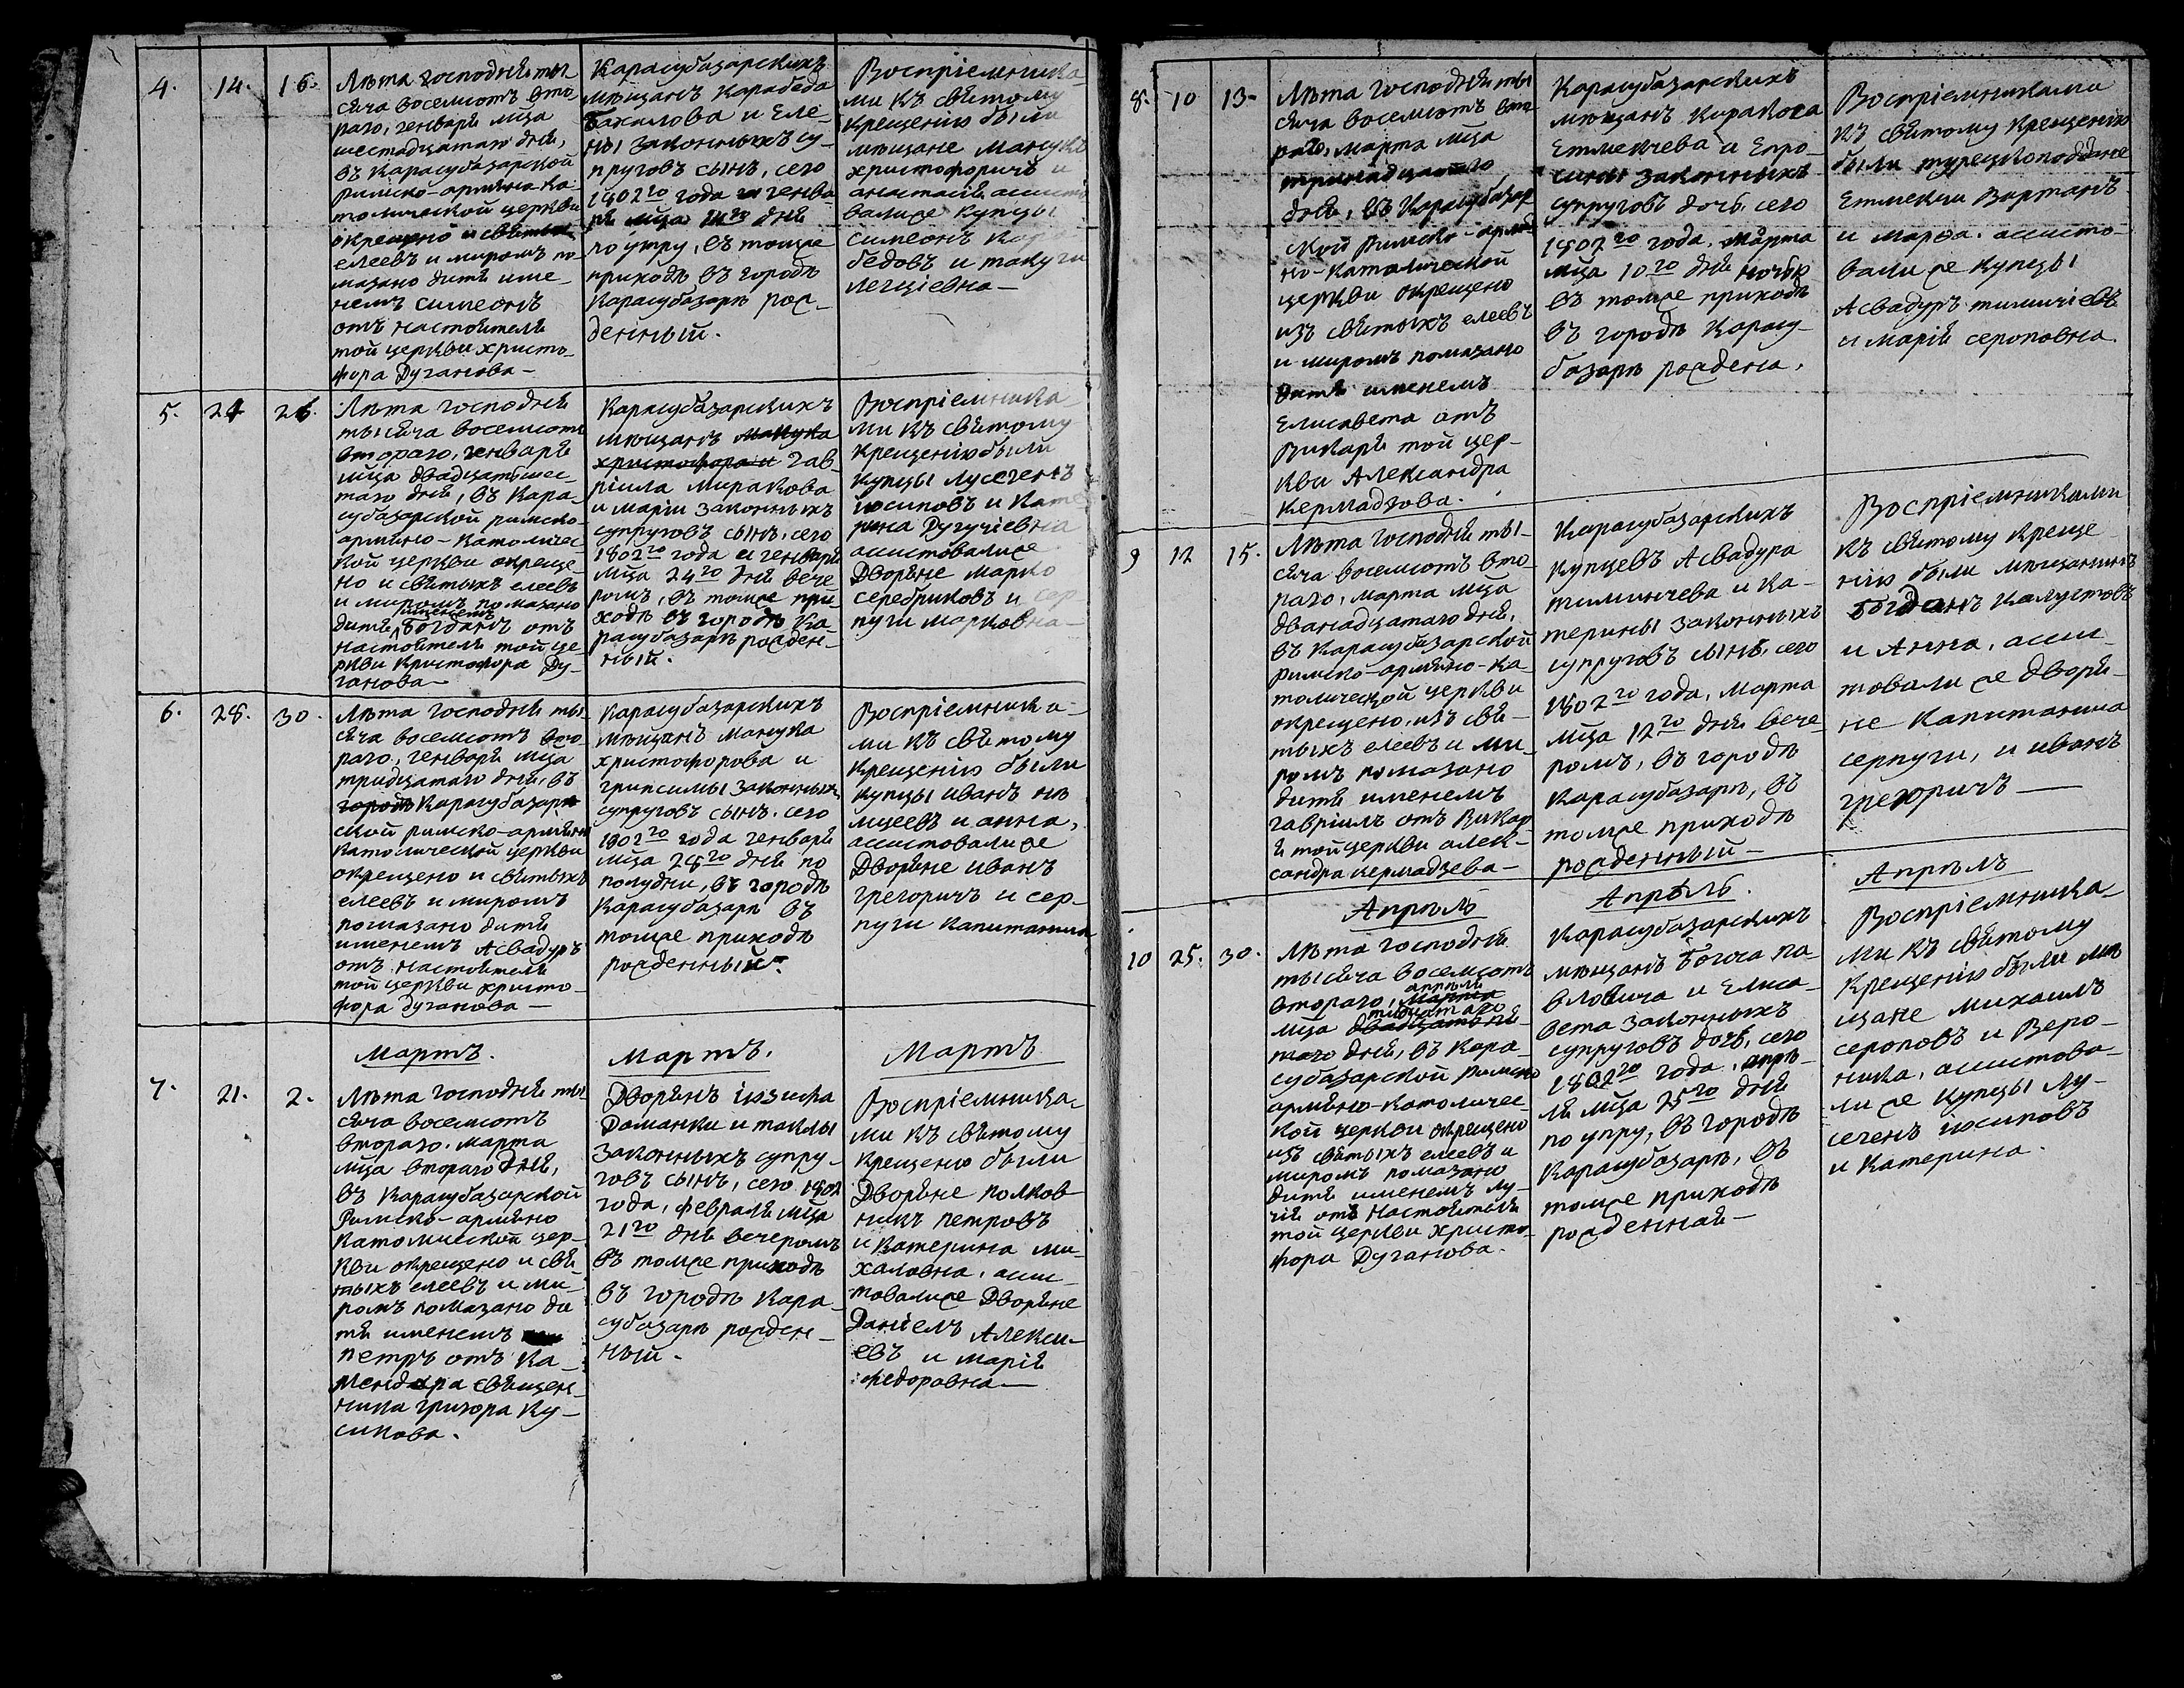 4. 14. 16.
Лѣта господнѧ ты
сѧча восемсотъ вто-
раго, генварѧ мца
шестадцатаго днѧ,
въ Карасубазарской
римско-армѧно-ка-
толической церкви
окрещено и свѧтыхъ
елеевъ и миромъ по-
мазано дитѧ име-
немъ симеонъ
отъ настоѧтелѧ
той церкви христо-
фора Дуганова —
Карасубазарскихъ
мѣщанъ Карабеда
Бакалова и Еле-
ны законныхъ су-
пруговъ сынъ, сего
1802го года генва-
рѧ мца 14го днѧ
по утру, въ томже
приходѣ въ городѣ
Карасубазарѣ рож-
денный.
Воспріемника-
ми къ свѧтому
крещенію были
мѣщане Манукъ
христофоричъ и
анастасіѧ ассисто
вали же купцы
симеонъ Кара
бедовъ и такуги
легціевна —
5. 24 26.
Лѣта господнѧ
тысѧча восемсотъ
втораго, генварѧ
мца двадцатьшес-
таго днѧ, въ Кара-
субазарской римско-
армѧно-католичес-
кой церкви окреще-
но и свѧтыхъ елеевъ
и миромъ помазано
дитѧ именемъ Богданъ отъ
настоѧтелѧ той це-
ркви Христофора Ду-
ганова —
Карасубазарскихъ
мѣщанъ Манука
христофора и гав-
ріила Миракова
и маріи законныхъ
супруговъ сынъ, сего
1802го года генварѧ
мца 24го днѧ вече
ромъ, въ томже при-
ходѣ въ городѣ Ка-
расубазарѣ рожден-
ный.
Воспріемника-
ми къ свѧтому
крещенію были
купцы лусегенъ
іосиповъ и Кате-
рина Дугучіевна
ассистовали же
Дворѧне марко
серебриковъ и сер
пуги марковна —
6. 28. 30.
Лѣта господнѧ ты-
сѧча восемсотъ вто
раго, генварѧ мца
тридцатаго днѧ, въ
городѣ Карасубазар
ской римско-армѧно
католической церкви
окрещено и свѧтыхъ
елеевъ и миромъ
помазано дитѧ
именемъ Асвадуръ
отъ настоѧтелѧ
той церкви христо-
фора дуганова —
Карасубазарскихъ
мѣщанъ Манука
христофорова и
грипсимы законныхъ
супруговъ сынъ, сего
1802го года генварѧ
мца 28го днѧ по
полудни, въ городѣ
Карасубазарѣ въ
томже приходѣ
рожденный.
Воспріемника-
ми къ свѧтому
крещенію были
купцы иванъ
и анна,
ассистовали же
Дворѧне иванъ
грегоричъ и сер-
пуги капитанша
Мартъ.
Мартъ.
Мартъ
7. 21. 2.
Лѣта господнѧ ты
сѧча восемсотъ
втораго, марта
мца втораго днѧ,
въ Карасубазарской
Римско-армѧно
католической цер-
кви окрещено и свѧ
тыхъ елеевъ и ми-
ромъ помазано ди
тѧ именемъ
петръ отъ ка-
мендора свѧщен-
ника григора ку-
сикова.
Дворѧнъ
Даманки и теклы
законныхъ супру-
говъ сынъ, сего 1802
года, февралѧ мца
21го днѧ вечеромъ
въ томже приходѣ
въ городѣ Кара-
субазарѣ рожден-
ный.
Воспріемника-
ми къ свѧтому
крещению были
Дворѧне полков-
никъ петровъ
и Катерина ми-
халовна, асси-
товали же Дворѧне
Даніелъ Алекси-
евъ и маріѧ
федоровна —
8. 10 13.
Лѣта господнѧ ты
сѧча восемсотъ вто
раго, марта мца
тринадцатаго
днѧ, въ Карасубазар
ской Римско-армѧ-
но-католической
церкви окрещено
изъ свѧтыхъ елеевъ
и миромъ помазано
дитѧ именемъ
Елисавета отъ
Викарѧ той цер-
кви Александра
Кермадзова.
Карасубазарскихъ
мѣщанъ Киракоса
Етмекчева и Епро-
сины законныхъ
супруговъ дочь, сего
1802го года, марта
мца 10го днѧ ночью
въ томже приходѣ
въ городѣ Карасу-
базарѣ рождена.
Воспріемниками
къ свѧтому крещенію
были турецкоподдане
Етмекчи Вартанъ
и Марѳа. ассисто-
вали же купцы
Асвадуръ тиминчіевъ
и маріѧ сероповна.
9 12 15.
Лѣта господнѧ ты-
сѧча восемсотъ вто-
раго, марта мца
дванадцатаго днѧ,
въ Карасубазарской
римско-армѧно-ка-
толической церкви
окрещено, изъ свѧ-
тыхъ елеевъ и ми-
ромъ помазано
дитѧ именемъ
гавріилъ отъ Викар
ѧ той церкви алек-
сандра кермадзева —
Карасубазарскихъ
купцевъ Асвадура
тиминчева и Ка-
терины законныхъ
супруговъ сынъ, сего
1802го года, марта
мца 12го днѧ вече-
ромъ, въ городѣ
Карасубазарѣ, въ
томже приходѣ
рожденный —
Воспріемниками
къ свѧтому креще
нію были мѣщанинъ
Богданъ Калустовъ
и Анна, асси-
товали же дворѧ-
не Капитанша
серпуги, и иванъ
грегоричъ —
Апрѣль
Апрѣль.
Апрѣлъ
10 25. 30.
Лѣта господнѧ
тысѧча восемсотъ
апрѣлѧ
втораго, марта
тридцатаго
мца двадцатьпѧ-
таго днѧ, въ Кара-
субазарской Римско
армѧно-католичес-
кой церкви окрещено
изъ свѧтыхъ елеевъ и
миромъ помазано
дитѧ именемъ лу-
чіѧ отъ настоѧтелѧ
той церкви христо-
фора Дуганова.
Карасубазарскихъ
мѣщанъ Богоса па-
вловича и Елиса-
вета законныхъ
супруговъ дочь, сего
1802го года, апрѣ-
лѧ мца 25го днѧ
по утру, въ городѣ
Карасубазарѣ, въ
томже приходѣ
рожденнаѧ —
Воспріемника-
ми къ свѧтому
крещенію были мѣ
щане михаилъ
сероповъ и Веро-
ника, ассистова-
ли же купцы лу-
сегенъ іосиповъ
и Катерина.